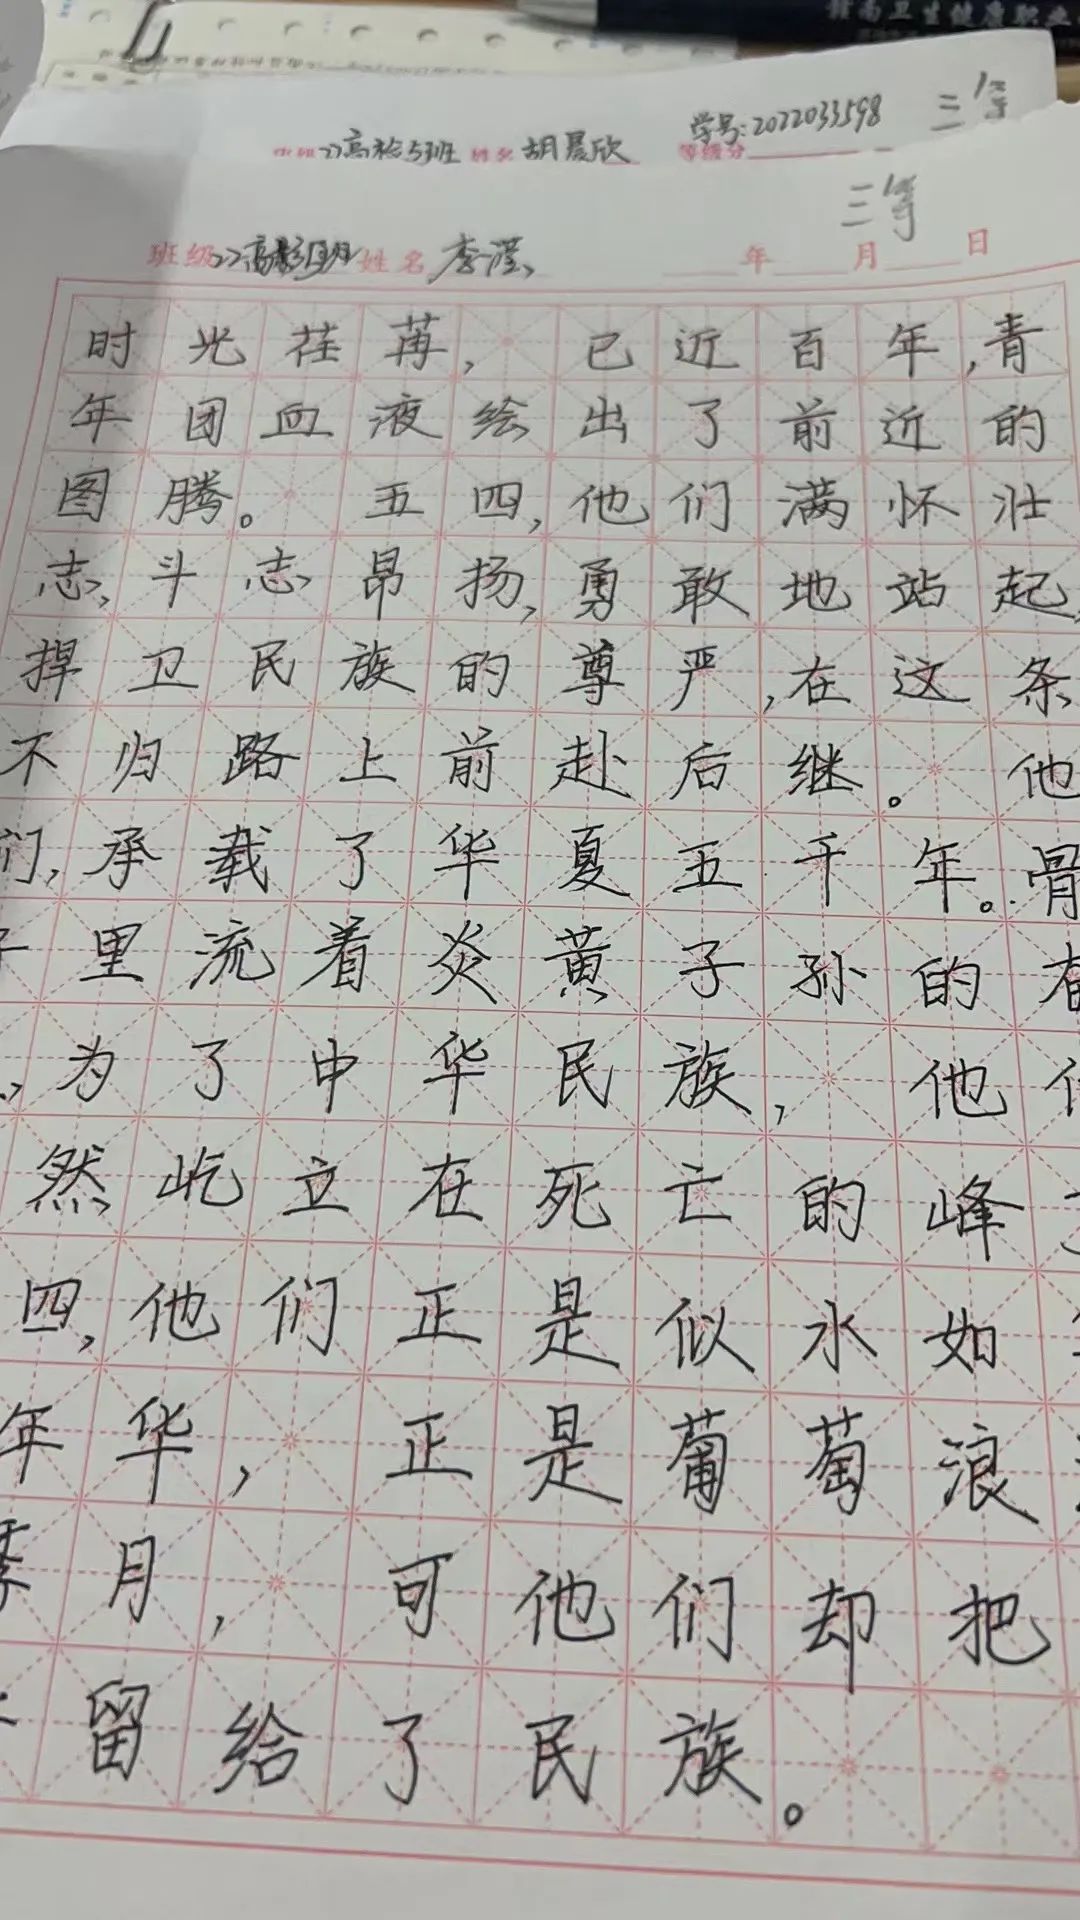 卫生健康职业
学号:2022033598 三等
22高检5班 姓名 胡晨欣 等级分
三等
班级 22高 班 姓名 李滢 年 月 日
时光荏苒, 已近百年,青
年团血液绘出了前近的
图腾。 五四,他们满怀壮
志,斗志昂扬,勇敢地站起,
捍卫民族的尊严,在这条
不归路上前赴后继。 他
们,承载了华夏五千年。骨
子里流着炎黄子孙的
,为了中华民族, 他
然屹立在死亡的峰
四,他们正是似水如
年华, 正是葡萄浪
季月, 可他们却把
留给了民族。